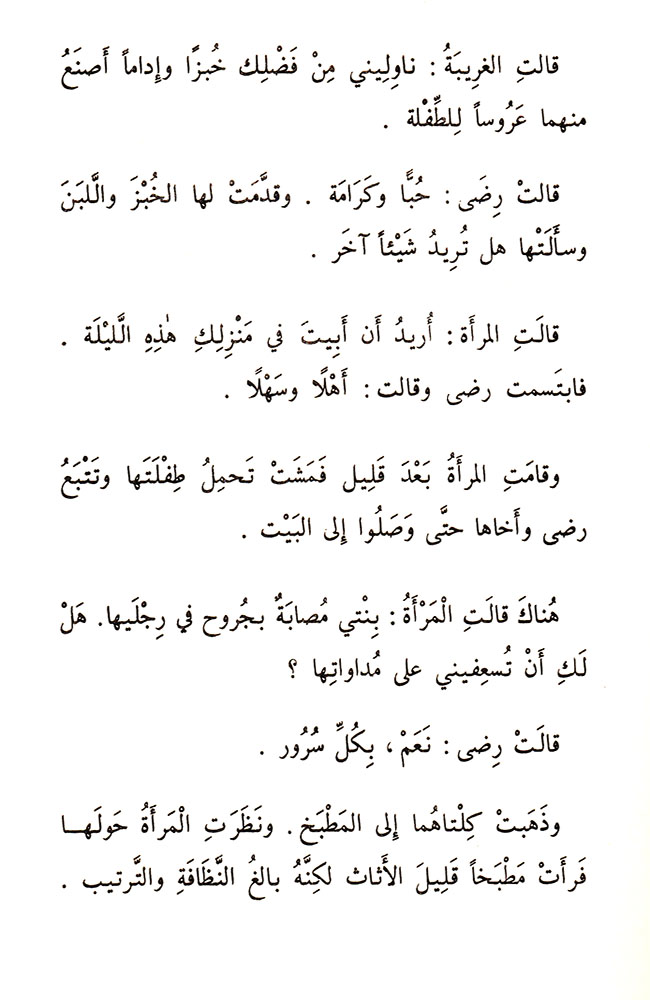 قالتِ الغرِيبَةُ : ناوِلِيني مِنْ فَضْلِك خُبزًا وإِداماً أَصنَعُ
منهما عَرُوساً لِلطِّفْلة .
قالتْ رِضَى : حُبًّا وكَرَامَة . وقدَّمَتْ لها الخُبْزَ واللَّبَنَ
وسأَلَتْها هل تُرِيدُ شَيْئاً آخَر .
قالَتِ المرأَة : أُريدُ أَن أَبِيتَ في مَنْزِلِكِ هٰذِهِ اللَّيْلَة .
فابتَسمت رضى وقالت : أَهْلًا وسَهْلًا .
وقامَتِ المرأَةُ بَعْدَ قَلِيل فَمَشَتْ تَحمِلُ طِفْلَتَها وتَتْبَعُ
رضى وأَخاها حتَّى وَصَلُوا إِلى البَيْت .
هُناكَ قالَتِ الْمَرْأَةُ : بِنْتي مُصابَةٌ بجُروح في رِجْلَيها. هَلْ
لَكِ أَنْ تُسعِفيني على مُداواتِها ؟
قالَتْ رِضى : نَعَمْ ، بِكُلِّ سُرُور .
وذَهَبتْ كِلْتاهُما إِلى المَطْبَخ . ونَظَرَتِ الْمَرأَةُ حَولَهـا
فَرأَتْ مَطْبَخاً قَلِيلَ الأَثاث لكِنَّهُ بالغُ النَّظَافَةِ والتَّرتيب .